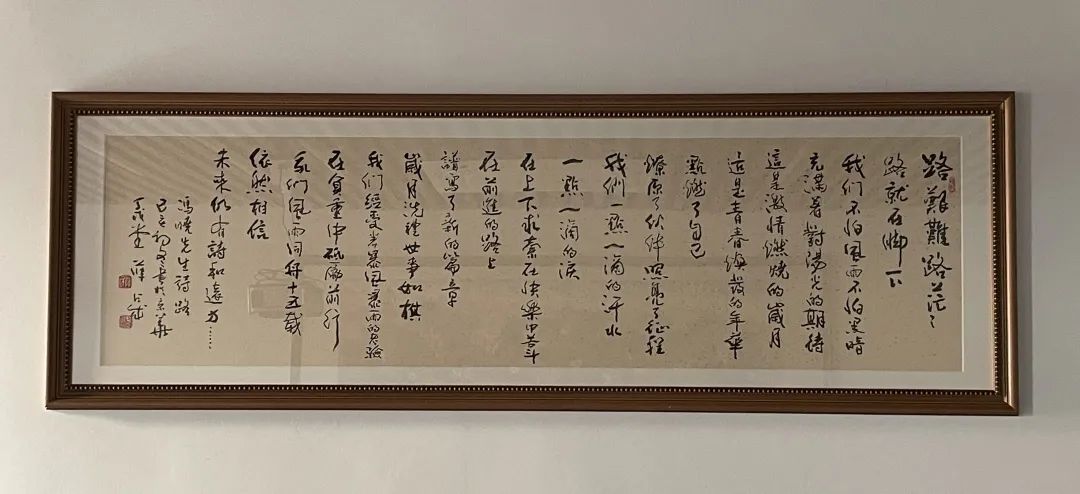 路艱難路茫々
路就在脚下
我们不怕風雨不怕黑暗
充滿着對陽光的期待
這是激情燃燒的歲月
這是青春煥發的年華
點燃了自己
燎原了伙伴照亮了征程
我們一點一滴的汗水
一點一滴的淚
在上下求索在快樂中苦斗
在前進的路上
譜寫了新的篇章
歲月洗禮世事如棋
我们經受者暴風暴雨的考驗
在負重中砥礪前行
我们風雨同舟十五載
依然相信
未来仍有詩和遠方……
馮曉先生詩路
己亥初冬書於京華